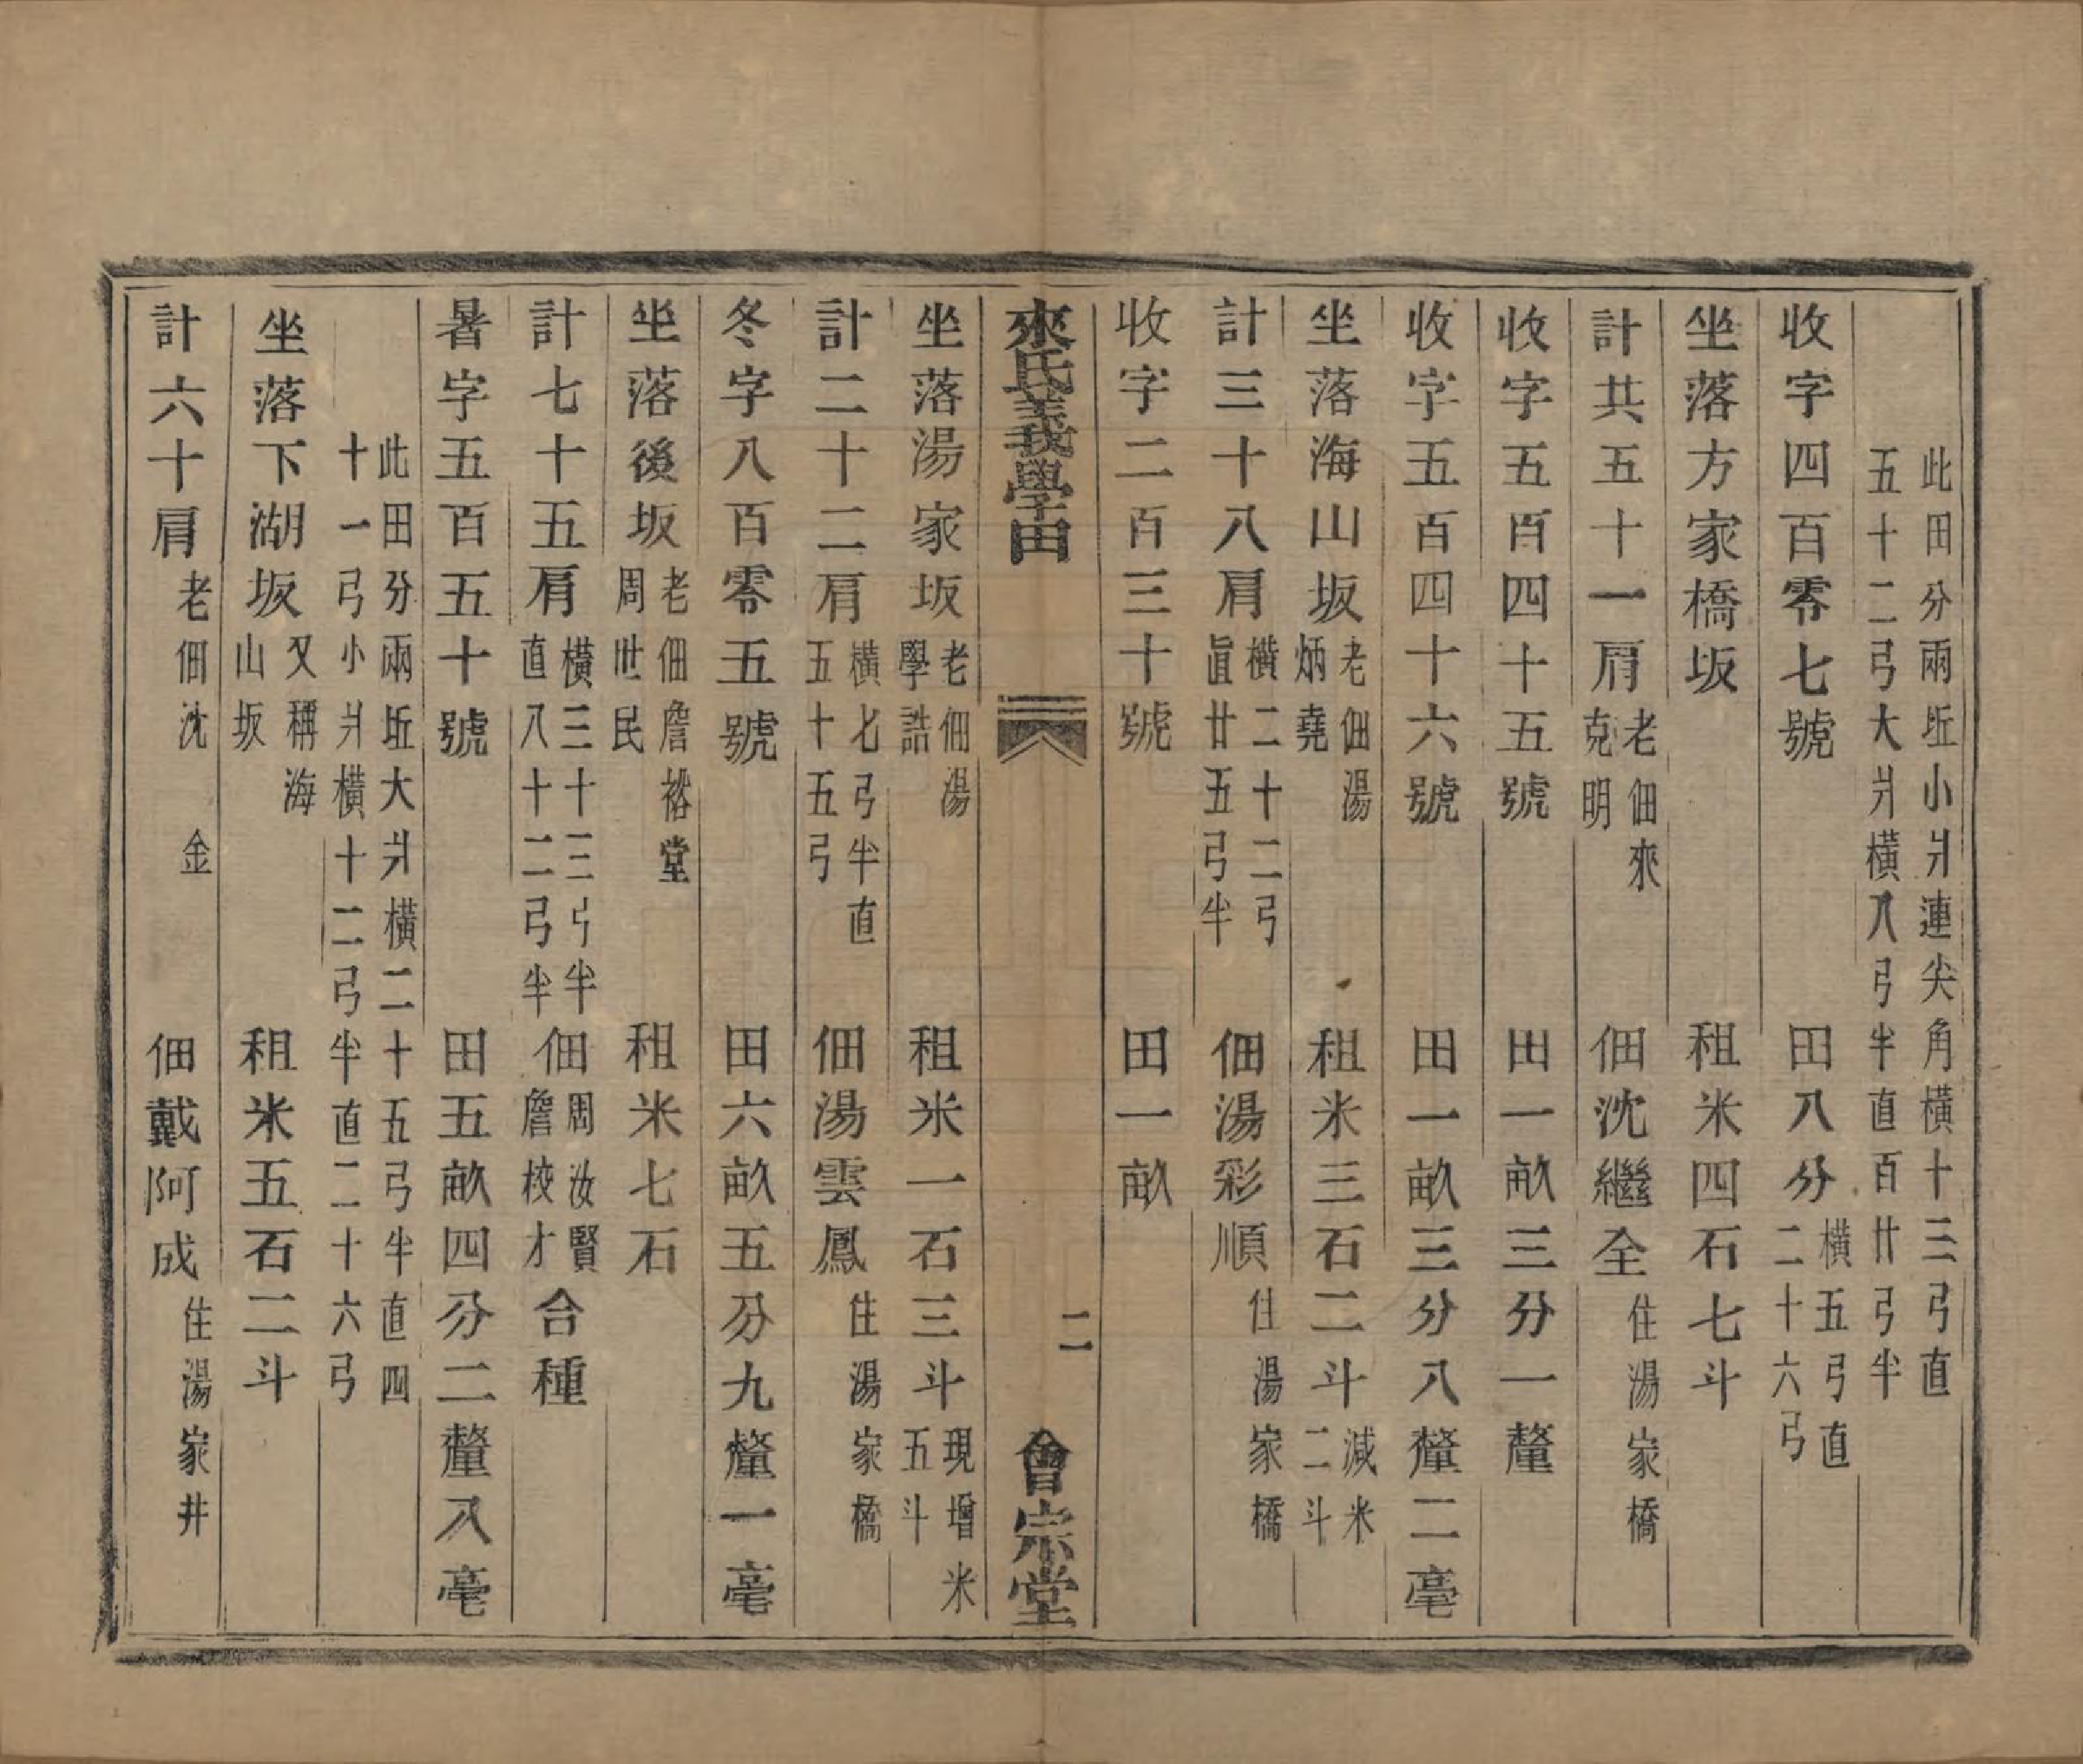 此田分兩坵小爿連尖角橫十三弓直
五十二弓大爿橫八弓半直百廿弓半
收字四百零七號　田八分
橫五弓直
二十六弓
坐落方家橋坂　租米四石七斗
計共五十一肩
老佃來
克明
佃沈繼全　住湯家橋
收字五百四十五號　田一畝三分一釐
收字五百四十六號　田一畝三分八釐二毫
坐落海山坂
老佃湯
炳堯
租米三石二斗
減米
二斗
計三十八肩
橫二十二弓
直廿五弓半
佃湯彩順　住湯家橋
收字二百三十號　田一畝
來氏義學田　二　會宗堂
坐落湯家坂
老佃湯
學誥
租米一石三斗
現增米
五斗
計二十二肩
橫七弓半直
五十五弓
佃湯雲鳳　住湯家橋
冬字八百零五號　田六畝五分九釐一毫
坐落後坂
老佃詹裕堂
周世民
租米七石
計七十五肩
橫三十三弓半
直八十二弓半
佃
周汝賢
詹校才
合種
暑字五百五十號　田五畝四分二釐八毫
此田分兩坵大爿橫二十五弓半直四
十一弓小爿橫十二弓半直二十六弓
坐落下湖坂
又稱海
山坂
租米五石二斗
計六十肩　老佃沈　金　佃戴阿成　住湯家井